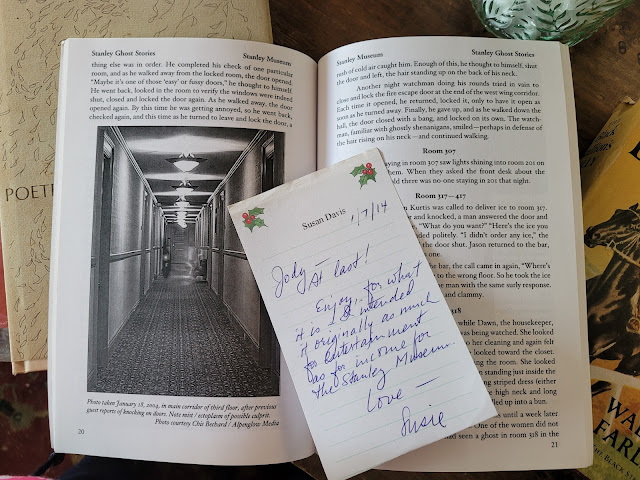 Stanley Ghost Stories Stanley Museum
thing else was in order. He completed his check of one particular
room, and as he walked away from the locked room, the door opened.
"Maybe it's one of those 'easy' or fussy doors," he thought to himself.
He went back, looked in the room to verify the windows were indeed
shut, closed and locked the door again. As he walked away, the door
opened again. By this time he was getting annoyed, so he went back,
checked again, and this time as he turned to leave and lock the door, a
Photo taken January 18, 2004, in main corridor of third floor, after previous
guest reports of knocking on doors. Note mist / ectoplasm of possible culprit.
Photo courtesy Chis Bechard / Alpenglow Media
20
Stanley Museum Stanley Ghost Stories
rush of cold air caught him. Enough of this, he thought to himself, shut
the door and left, the hair standing up on the back of his neck.
Another night watchman doing his rounds tried in vain to
close and lock the fire escape door at the end of the west wing corridor.
Each time it opened, he returned, locked it, only to have it open as
soon as he turned away. Finally, he gave up, and as he walked down the
hall, the door closed with a bang, and locked on its own. The watch-
man, familiar with ghostly shenanigans, smiled—perhaps in defense of
the hair rising on his neck—and continued walking.
Room 307
staying in room 307 saw lights shining into room 201 on
When they asked the front desk about the
told there was no-one staying in 201 that night.
Room 317—417
Kurtis was called to deliver ice to room 317.
and knocked, a man answered the door and
"What do you want?" "Here's the ice you
ded politely. "I didn't order any ice," the
the door shut. Jason returned to the bar,
one.
the bar, the call came in again, "Where's
to the wrong floor. So he took the ice
me man with the same surly response.
and clammy.
318
while Dawn, the housekeeper,
was being watched. She looked
o her cleaning and again felt
looked toward the closet.
ing the room. She looked
an standing just inside the
ing striped dress (either
e high neck and long
lled up into a bun.
until a week later
One of the women did not
had seen a ghost in room 318 in the
21
Susan Davis
1/7/14
Jody—
At last!
Enjoy.. for what
it is. I intended
it originally as much
for entertainment
as for income for
The Stanley Museum.
Love —
Susie
POETR
WAL
FARL